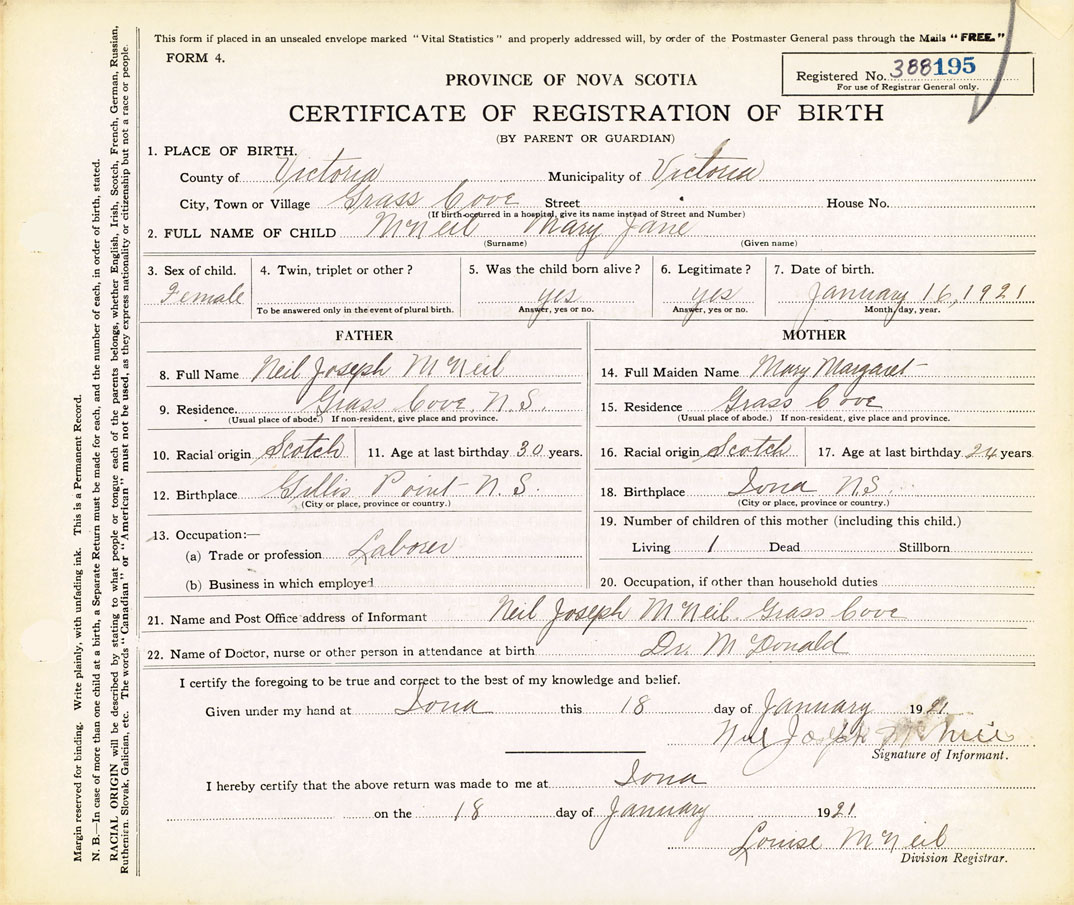 This form if placed in an unsealed envelope marked "Vital Statistics" and properly addressed will, by order of the Postmaster General pass through the Mails "FREE."
FORM 4.
Registered No. 388195
For use of Registrar General only.
PROVINCE OF NOVA SCOTIA
CERTIFICATE OF REGISTRATION OF BIRTH
(BY PARENT OR GUARDIAN)
1. PLACE OF BIRTH.
County of Victoria Municipality of Victoria
City, Town or Village Grass Cove Street House No.
(If birth occurred in a hospital, give its name instead of Street and Number)
2. FULL NAME OF CHILD McNeil Mary Jane
(Surname) (Given name)
3. Sex of child. 4. Twin, triplet or other? 5. Was the child born alive? 6. Legitimate? 7. Date of birth.
Female yes yes January 16, 1921
To be answered only in the event of plural birth. Answer, yes or no. Answer, yes or no. Month, day, year.
FATHER
8. Full Name Neil Joseph McNeil
9. Residence. Grass Cove, N.S.
(Usual place of abode.) If non-resident, give place and province.
10. Racial origin Scotch 11. Age at last birthday 30 years.
12. Birthplace Gillis Point N.S.
(City or place, province or country.)
13. Occupation:—
(a) Trade or profession Laborer
(b) Business in which employed
MOTHER
14. Full Maiden Name Mary Margaret
15. Residence Grass Cove
(Usual place of abode.) If non-resident, give place and province.
16. Racial origin Scotch 17. Age at last birthday 24 years
18. Birthplace Iona N.S.
(City or place, province or country.)
19. Number of children of this mother (including this child.)
Living 1 Dead Stillborn
20. Occupation, if other than household duties
21. Name and Post Office address of Informant Neil Joseph McNeil. Grass Cove
22. Name of Doctor, nurse or other person in attendance at birth Dr. McDonald
I certify the foregoing to be true and correct to the best of my knowledge and belief.
Given under my hand at Iona this 18 day of January 1921
Neil Joseph McNeil
Signature of Informant.
I hereby certify that the above return was made to me at Iona
on the 18 day of January 1921
Louise McNeil
Division Registrar.
Margin reserved for binding. Write plainly, with unfading ink. This is a Permanent Record.
N. B.—In case of more than one child at a birth, a Separate Return must be made for each, and the number of each, in order of birth, stated.
RACIAL ORIGIN will be described by stating to what people or tongue each of the parents belongs, whether English, Irish, Scotch, French, German, Russian,
Ruthenian, Slovak, Galician, etc. The words "Canadian" or "American" must not be used, as they express nationality or citizenship but not a race or people.